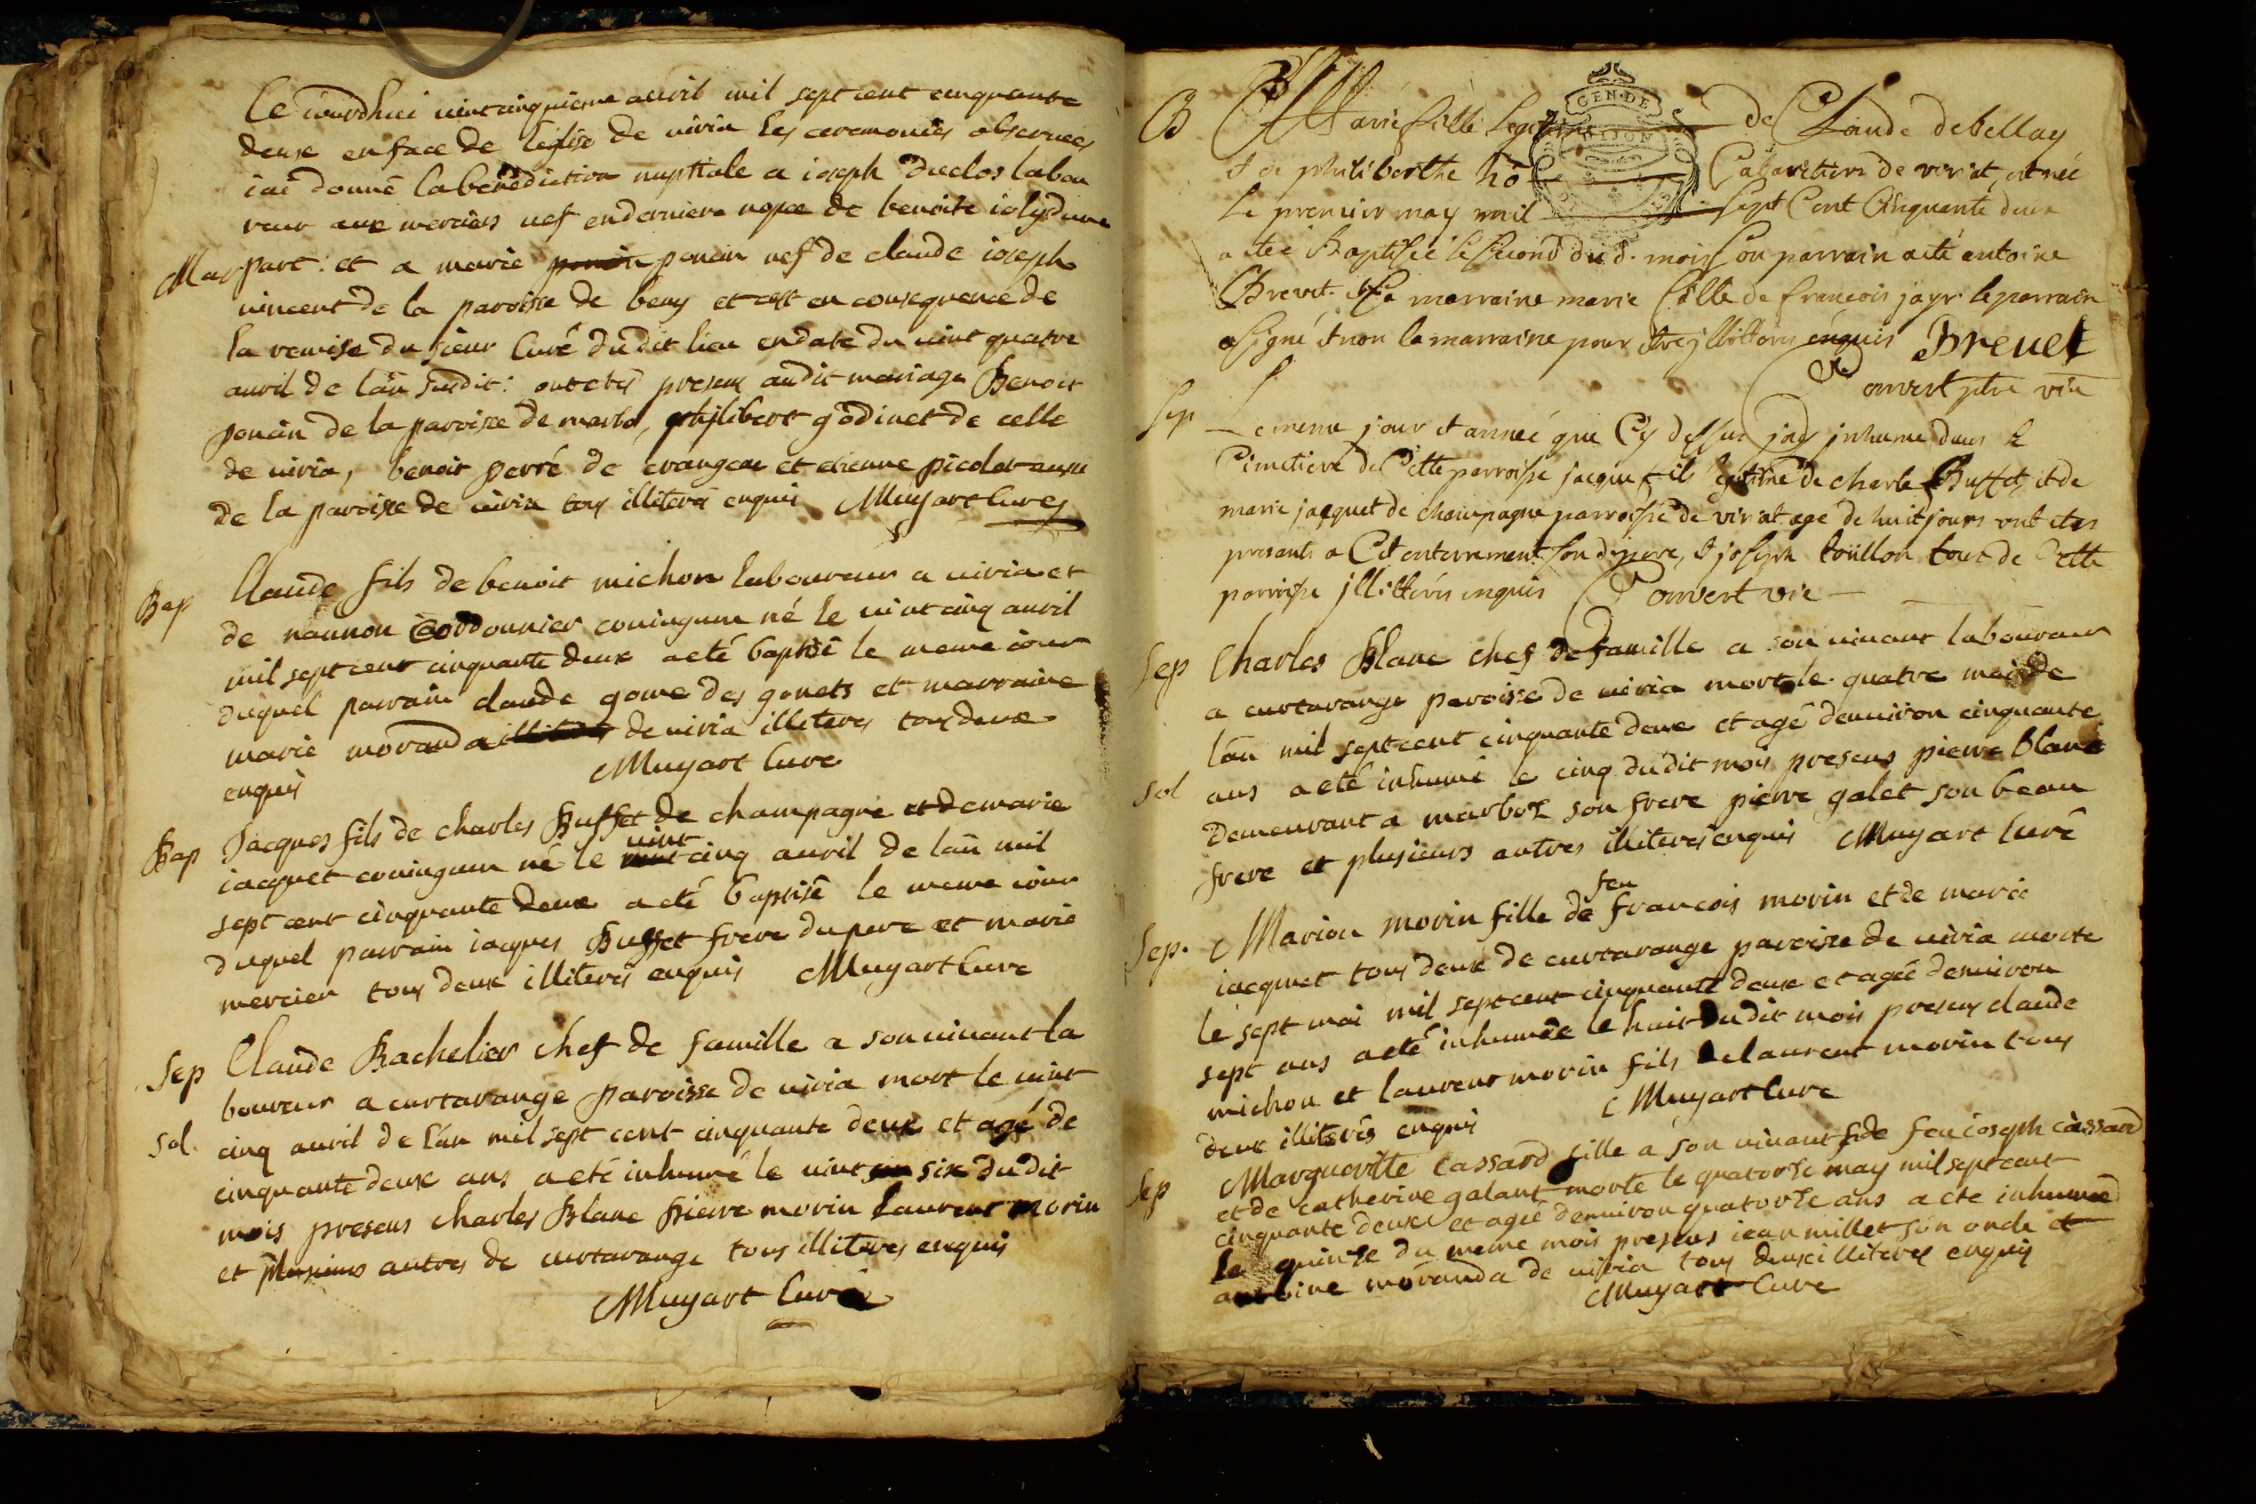 Ce iourdhui vint cinquieme auril mil sept cent cinquante
deux en face de l'eglise de viria les ceremonies obseruees
iai donné la benediction nuptiale a ioseph duclos labou
reur aux merciers uef en derniere nopce de benoite ioly dune
Mar part: et a marie ponein uef de claude ioseph
uincent de la paroisse de beny et cest en consequence de
la remise du sieur curé dudit lieu en date du uint quatre
auril de lan susdit: ont etés presens audit mariage Benoit
ponein de la paroisse de marbo, philibert godinet de celle
de uiria, benoit perré de crangeac et etienne picolet aussi
de la paroisse de uiria tous illiterés enquis Muyart Curé
Bap Claude fils de benoit michon laboureur a uiria et
de nannon Cordonnier coniugum né le uint cinq auril
mil sept cent cinquante deux a eté baptisé le meme iour
duquel parrain claude gome des gonets et marraine
marie moranda de uiria illiteres tous deux
enquis Muyart Cure
Bap Jacques fils de charles Buffet de champagne et de marie
uint
iacquet coniugum né le cinq auril de lan mil
sept cent cinquante deux a eté baptisé le meme iour
duquel parrain iacques Buffet frere du pere et marie
mercier tous deux illiterés enquis Muyart Cure
Sep Claude Bachelier chef de famille a son uiuant la
boureur a curtarange paroisse de uiria mort le uint
Sol. cinq auril de lan mil sept cent cinquante deux et agé de
cinquante deux ans a eté inhumé le uint six dudit
mois presens charles Blanc pierre morin Laurent morin
et plusieurs autres de curtarange tous illiteres enquis
Muyart Curé
B Marie fille Legitime de Claude debellay
& de philiberthe Cabaretiers de viriat, est née
le premier may mil sept Cent Cinquante deux
a eteé Baptisée le second du d. mois son parrain a eté antoine
Brevet. & Sa marraine marie fille de francois jayr le parrain
a signé & non la marraine pour etre jllitterée enquis Breuet
Convert ptre vic
Sep Le meme jour et année que Cy dessus jay jnhume dans le
Cimetiere de Cette parroisse jacque fils legitime de charle Buffet, et de
marie jacquet de champagne parroisse de viriat agé de huit jours ont etés
presants a Cet enterrement son d. pere, & joseph touillon tous de Cette
parroisse jllitterés enquis Convert vic
Sep Charles Blanc chef de famille a son uiuant laboureur
a curtarange paroisse de uiria mort le quatre mai de
lan mil sept cent cinquante deux et agé denuiron cinquante
Sol ans a eté inhumé le cinq dudit mois presens pierre Blanc
demeurant a marboz son frere pierre galet son beau
frere et plusieurs autres illiteres enquis Muyart Curé
feu
Sep. Marion morin fille de francois morin et de marie
iacquet tous deux de curtarange paroisse de uiria morte
le sept mai mil sept cent cinquante deux et agée denuiron
sept ans a eté inhumée le huit dudit mois presens claude
michon et laurent morin fils de laurent morin tous
deux illiterés enquis Muyart Cure
Sep Marguerite Cassard fille a son uiuant de feu ioseph cassard
et de catherine galant morte le quatorse may mil sept cent
cinquante deux et agée denuiron quatorse ans a ete inhumée
le quinse du meme mois presens iean millet son oncle et
antoine moranda de uiria tous deux illiteres enquis
Muyart Cure